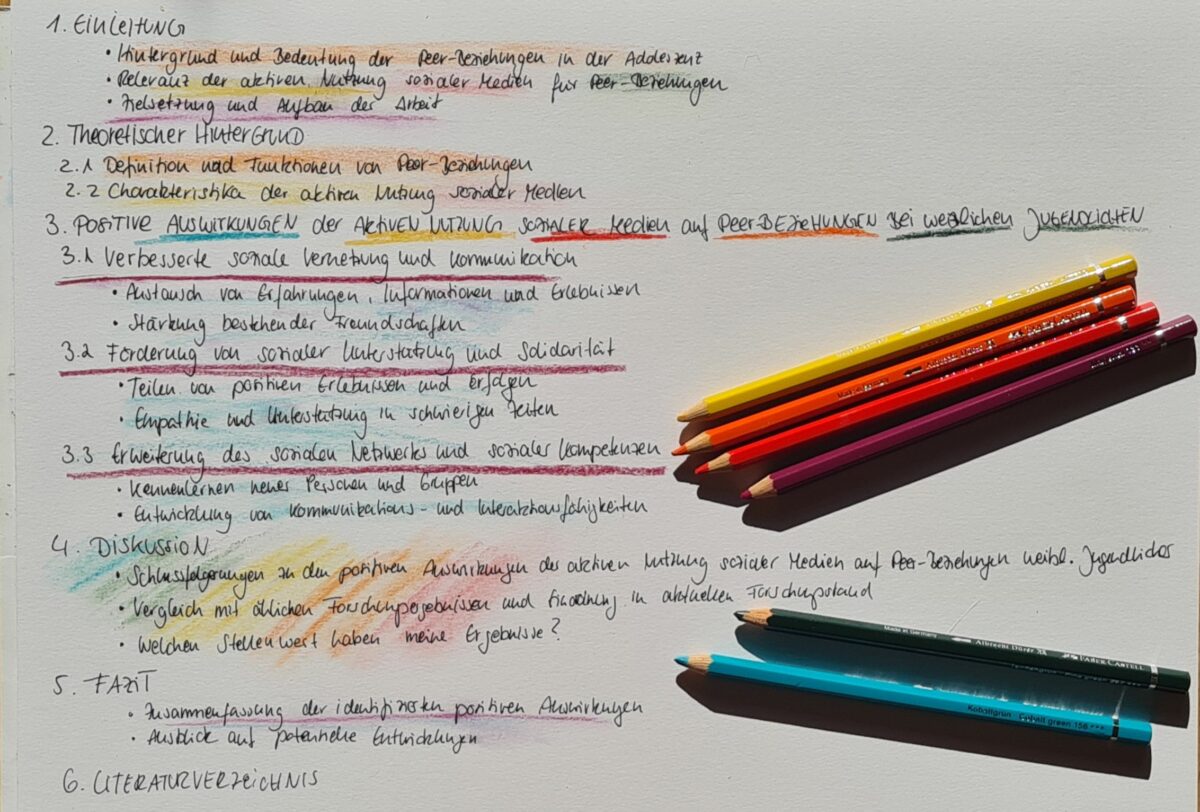 1. EINLEITUNG
• Hintergrund und Bedeutung der Peer-Beziehungen in der Adoleszenz
• Relevanz der aktiven Nutzung sozialer Medien für Peer-Beziehungen
• Zielsetzung und Aufbau der Arbeit
2. Theoretischer HINTERGRUND
2.1 Definition und Funktionen von Peer-Beziehungen
2.2 Charakteristika der aktiven Nutzung sozialer Medien
3. POSITIVE AUSWIRKUNGEN der AKTIVEN NUTZUNG SOZIALER MEDIEN auf Peer-BEZIEHUNGEN BEI WEIBLICHEN JUGENDLICHEN
3.1 Verbesserte soziale Vernetzung und Kommunikation
• Austausch von Erfahrungen, Informationen und Erlebnissen
• Stärkung bestehender Freundschaften
3.2 Förderung von sozialer Unterstützung und Solidarität
• Teilen von positiven Erlebnissen und Erfolgen
• Empathie und Unterstützung in schwierigen Zeiten
3.3 Erweiterung des sozialen Netzwerks und sozialer Kompetenzen
• Kennenlernen neuer Personen und Gruppen
• Entwicklung von Kommunikations- und Interaktionsfähigkeiten
4. DISKUSSION
• Schlussfolgerungen zu den positiven Auswirkungen der aktiven Nutzung sozialer Medien auf Peer-Beziehungen weibl. Jugendlicher
• Vergleich mit Forschungsergebnissen und Einordnung in aktuellen Forschungsstand
• Welchen Stellenwert haben meine Ergebnisse?
5. FAZIT
• Zusammenfassung der identifizierten positiven Auswirkungen
• Ausblick auf potentielle Entwicklungen
6. LITERATURVERZEICHNIS
Made in Germany Albrecht Dürer FABER-CASTELL
Kobaltgrün Cobalt green 156 ***